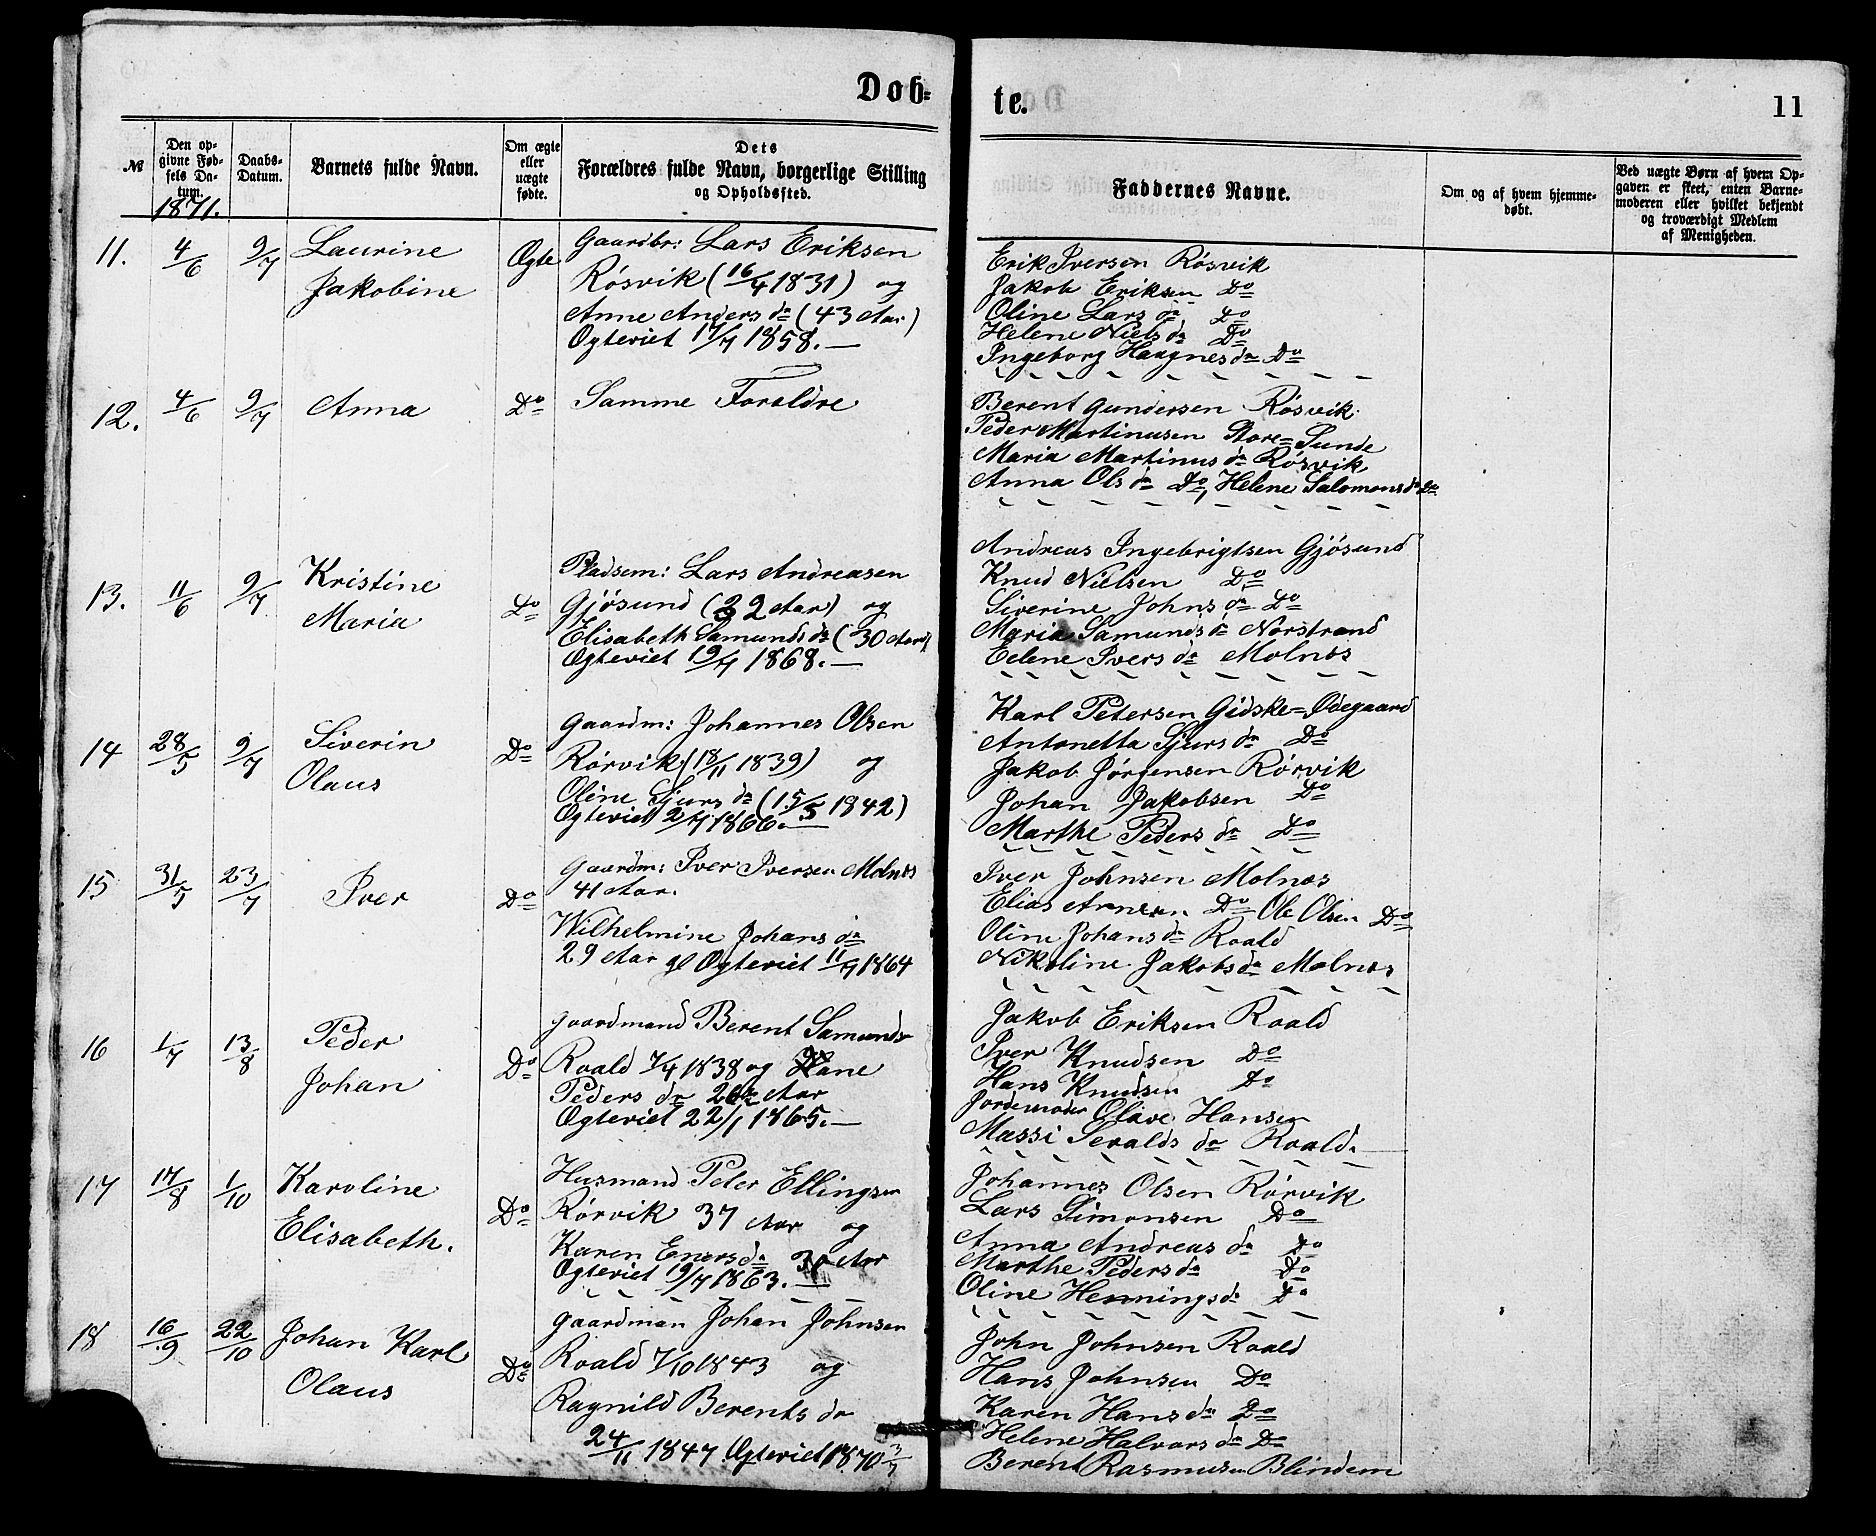 Døb=
te.
11
№
Den op-
givne Fød-
sels Da-
tum.
1871.
Daabs-
Datum.
Barnets fulde Navn.
Om ægte
eller
uægte
fødte.
Dets
Forældres fulde Navn, borgerlige Stilling
og Opholdssted.
Faddernes Navne.
Om og af hvem hjemme-
døbt.
Ved uægte Børn af hvem Op-
gaven er skeet, enten Barne-
moderen eller hvilket bekjendt
og troværdigt Medlem
af Menigheden.
11. 4/6 9/7 Laurine
Jakobine
Ægte
Gaardbr: Lars Eriksen
Røsvik (16/4 1831) og
Anne Anders dr (43 Aar)
Ægteviet 17/7 1858.—
Erik Iversen Røsvik
Jakob Eriksen Do
Oline Lars dr Do
Helene Niels dr Do
Ingeborg Haagnes dr Do
12. 4/6 9/7 Anna Do Samme Forældre
Berent Gundersen Røsvik
Peder Martinusen Store=Sunde
Maria Martinus dr Røsvik
Anna Ols dr Do, Helene Salomons dr Do
13. 11/6 9/7 Kristine
Maria
Do
Pladsem: Lars Andreasen
Gjøsund (32 Aar) og
Elisabeth Samunds dr (30 Aar)
Ægteviet 19/7 1868.—
Andreas Ingebrigtsen Gjøsund
Knud Nielsen Do
Siverine Johns dr Do
Maria Samunds dr Norstrand
Eelene Ivers dr Molnes
14 28/5 9/7 Siverin
Olaus
Do
Gaardm: Johannes Olsen
Rørvik (18/11 1839) og
Oline Sjurs dr (15/5 1842)
Ægteviet 2/7 1866.—
Karl Petersen Gidske=Ødegaard
Antonetta Sjurs dr Do
Jakob Jørgensen Rørvik
Johan Jakobsen Do
Marthe Peders dr Do
15 31/5 23/7 Iver Do
Gaardm: Iver Iversen Molnes
41 Aar.
Wilhelmine Johans dr
29 Aar gl Ægteviet 11/7 1864
Iver Johnsen Molnes
Elias Arnesen Do Ole Olsen Do
Oline Johans dr Roald
Nikoline Jakobs dr Molnes
16 1/7 13/8 Peder
Johan
Do
Gaardmand Berent Samunds
Roald 7/4 1838 og Hane
Peders dr Aar
Ægteviet 22/1 1865.—
Jakob Eriksen Roald
Iver Knudsen Do
Hans Knudsen Do
Jordemoder Olave Hansen
Massi Sevalds dr Roald.
17 17/8 1/10 Karoline
Elisabeth.
Do
Husmand Peter Ellingsen
Rørvik 37 Aar og
Karen Eners dr Aar
Ægteviet 19/7 1863.—
Johannes Olsen Rørvik
Lars Simonsen Do
Anna Andreas dr Do
Marthe Peders dr Do
Oline Hennings dr Do
18 16/9 22/10 Johan Karl
Olaus
Do
Gaardman Johan Johnsen
Roald 7/10 1843 og
Ragnild Berents dr
24/11 1847 Ægteviet 1870 3/7
John Johnsen Roald
Hans Johnsen Do
Karen Hans dr Do
Helene Halvors dr Do
Berent Rasmusen Blindem